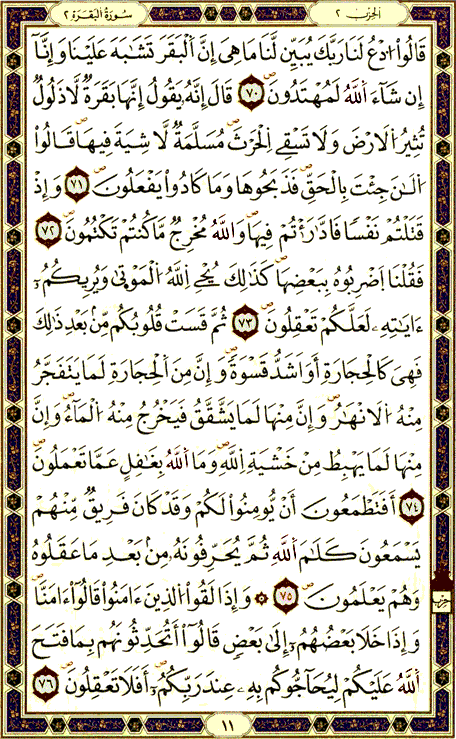 الحزب ٢
سورة البقرة ٢
قَالُوا۟ ادْعُ لَنَا رَبَّكَ يُبَيِّن لَّنَا مَا هِىَ إِنَّ اَ۬لْبَقَرَ تَشَٰبَهَ عَلَيْنَا وَإِنَّآ
إِن شَآءَ اَ۬للَّهُ لَمُهْتَدُونَۖ ٧٠ قَالَ إِنَّهُۥ يَقُولُ إِنَّهَا بَقَرَةٌ لَّا ذَلُولٌ
تُثِيرُ اُ۬لَارْضَ وَلَا تَسْقِے اِ۬لْحَرْثَۖ مُسَلَّمَةٌ لَّا شِيَةَ فِيهَاۖ قَالُوا۟
اُ۬لَٰنَ جِئْتَ بِالْحَقِّۖ فَذَبَحُوهَا وَمَا كَادُوا۟ يَفْعَلُونَۖ ٧١ وَإِذْ
قَتَلْتُمْ نَفْسًا فَادَّٰرَْٰٔتُمْ فِيهَاۖ وَاللَّهُ مُخْرِجٌ مَّا كُنتُمْ تَكْتُمُونَۖ ٧٢
فَقُلْنَا اَ۪ضْرِبُوهُ بِبَعْضِهَاۖ كَذَٰلِكَ يُحْےِ اِ۬للَّهُ اُ۬لْمَوْتَىٰ وَيُرِيكُمُۥٓ
ءَايَٰتِهِۦ لَعَلَّكُمْ تَعْقِلُونَۖ ٧٣ ثُمَّ قَسَتْ قُلُوبُكُم مِّنۢ بَعْدِ ذَٰلِكَ
فَهِىَ كَالْحِجَارَةِ أَوَ اَشَدُّ قَسْوَةًۖ وَإِنَّ مِنَ اَ۬لْحِجَارَةِ لَمَا يَتَفَجَّرُ
مِنْهُ اُ۬لَانْهَٰرُۖ وَإِنَّ مِنْهَا لَمَا يَشَّقَّقُ فَيَخْرُجُ مِنْهُ اُ۬لْمَآءُۖ وَإِنَّ
مِنْهَا لَمَا يَهْبِطُ مِنْ خَشْيَةِ اِ۬للَّهِۖ وَمَا اَ۬للَّهُ بِغَٰفِلٍ عَمَّا تَعْمَلُونَۖ
٧٤ أَفَتَطْمَعُونَ أَنْ يُّومِنُوا۟ لَكُمْ وَقَدْ كَانَ فَرِيقٌ مِّنْهُمْ
يَسْمَعُونَ كَلَٰمَ اَ۬للَّهِ ثُمَّ يُحَرِّفُونَهُۥ مِنۢ بَعْدِ مَا عَقَلُوهُ
وَهُمْ يَعْلَمُونَۖ ٧٥ ۞ وَإِذَا لَقُوا۟ اُ۬لذِينَ ءَامَنُوا۟ قَالُوٓا۟ ءَامَنَّاۖ
وَإِذَا خَلَا بَعْضُهُمُۥٓ إِلَىٰ بَعْضٍ قَالُوٓا۟ أَتُحَدِّثُونَهُم بِمَا فَتَحَ
اَ۬للَّهُ عَلَيْكُمْ لِيُحَآجُّوكُم بِهِۦ عِندَ رَبِّكُمُۥٓۖ أَفَلَا تَعْقِلُونَۖ ٧٦
حزب
١١